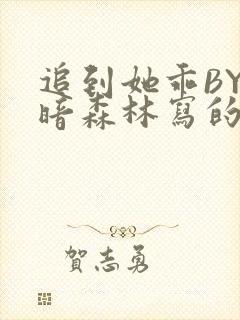 追到她乖BY
暗森林寫的
賀志勇